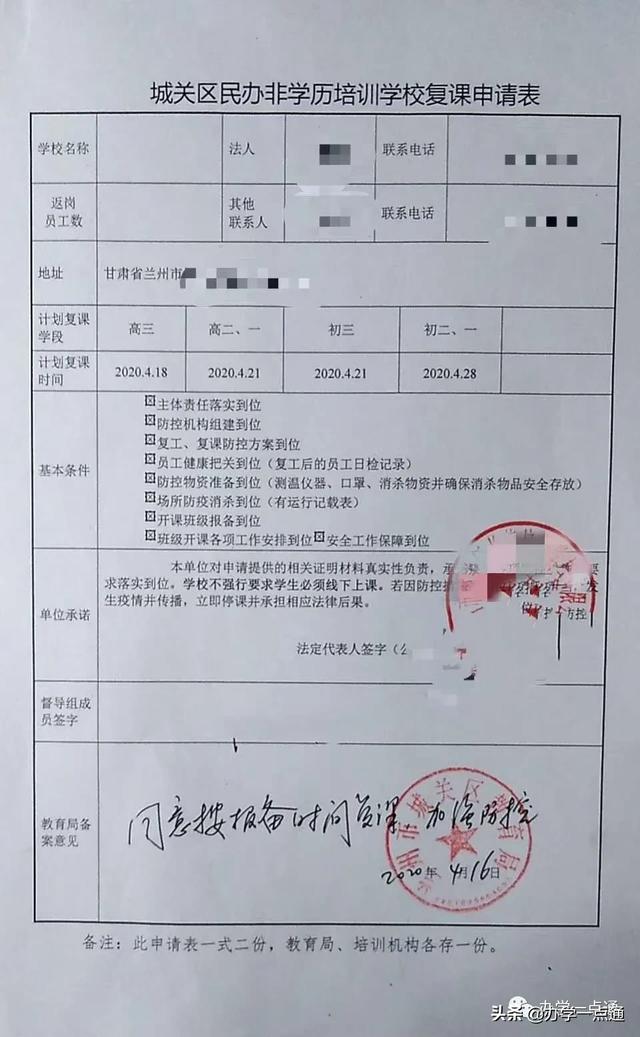 城关区民办非学历培训学校复课申请表
学校名称 法人 联系电话
返岗
员工数 其他
联系人 联系电话
地址 甘肃省兰州市
计划复课
学段 高三 高二、一 初三 初二、一
计划复课
时间 2020.4.18 2020.4.21 2020.4.21 2020.4.28
基本条件
☒主体责任落实到位
☒防控机构组建到位
☒复工、复课防控方案到位
☒员工健康把关到位（复工后的员工日检记录）
☒防控物资准备到位（测温仪器、口罩、消杀物资并确保消杀物品安全存放）
☒场所防疫消杀到位（有运行记载表）
☒开课班级报备到位
☒班级开课各项工作安排到位☒安全工作保障到位
单位承诺
本单位对申请提供的相关证明材料真实性负责，承 要
求落实到位。学校不强行要求学生必须线下上课。若因防控措 发
生疫情并传播，立即停课并承担相应法律后果。
法定代表人签字（公
督导组成
员签字
教育局备
案意见
同意按报备时间复课 加强防控
兰州市城关区教育局
2020年4月16日
备注：此申请表一式二份，教育局、培训机构各存一份。
办学一点通
头条 @办学一点通